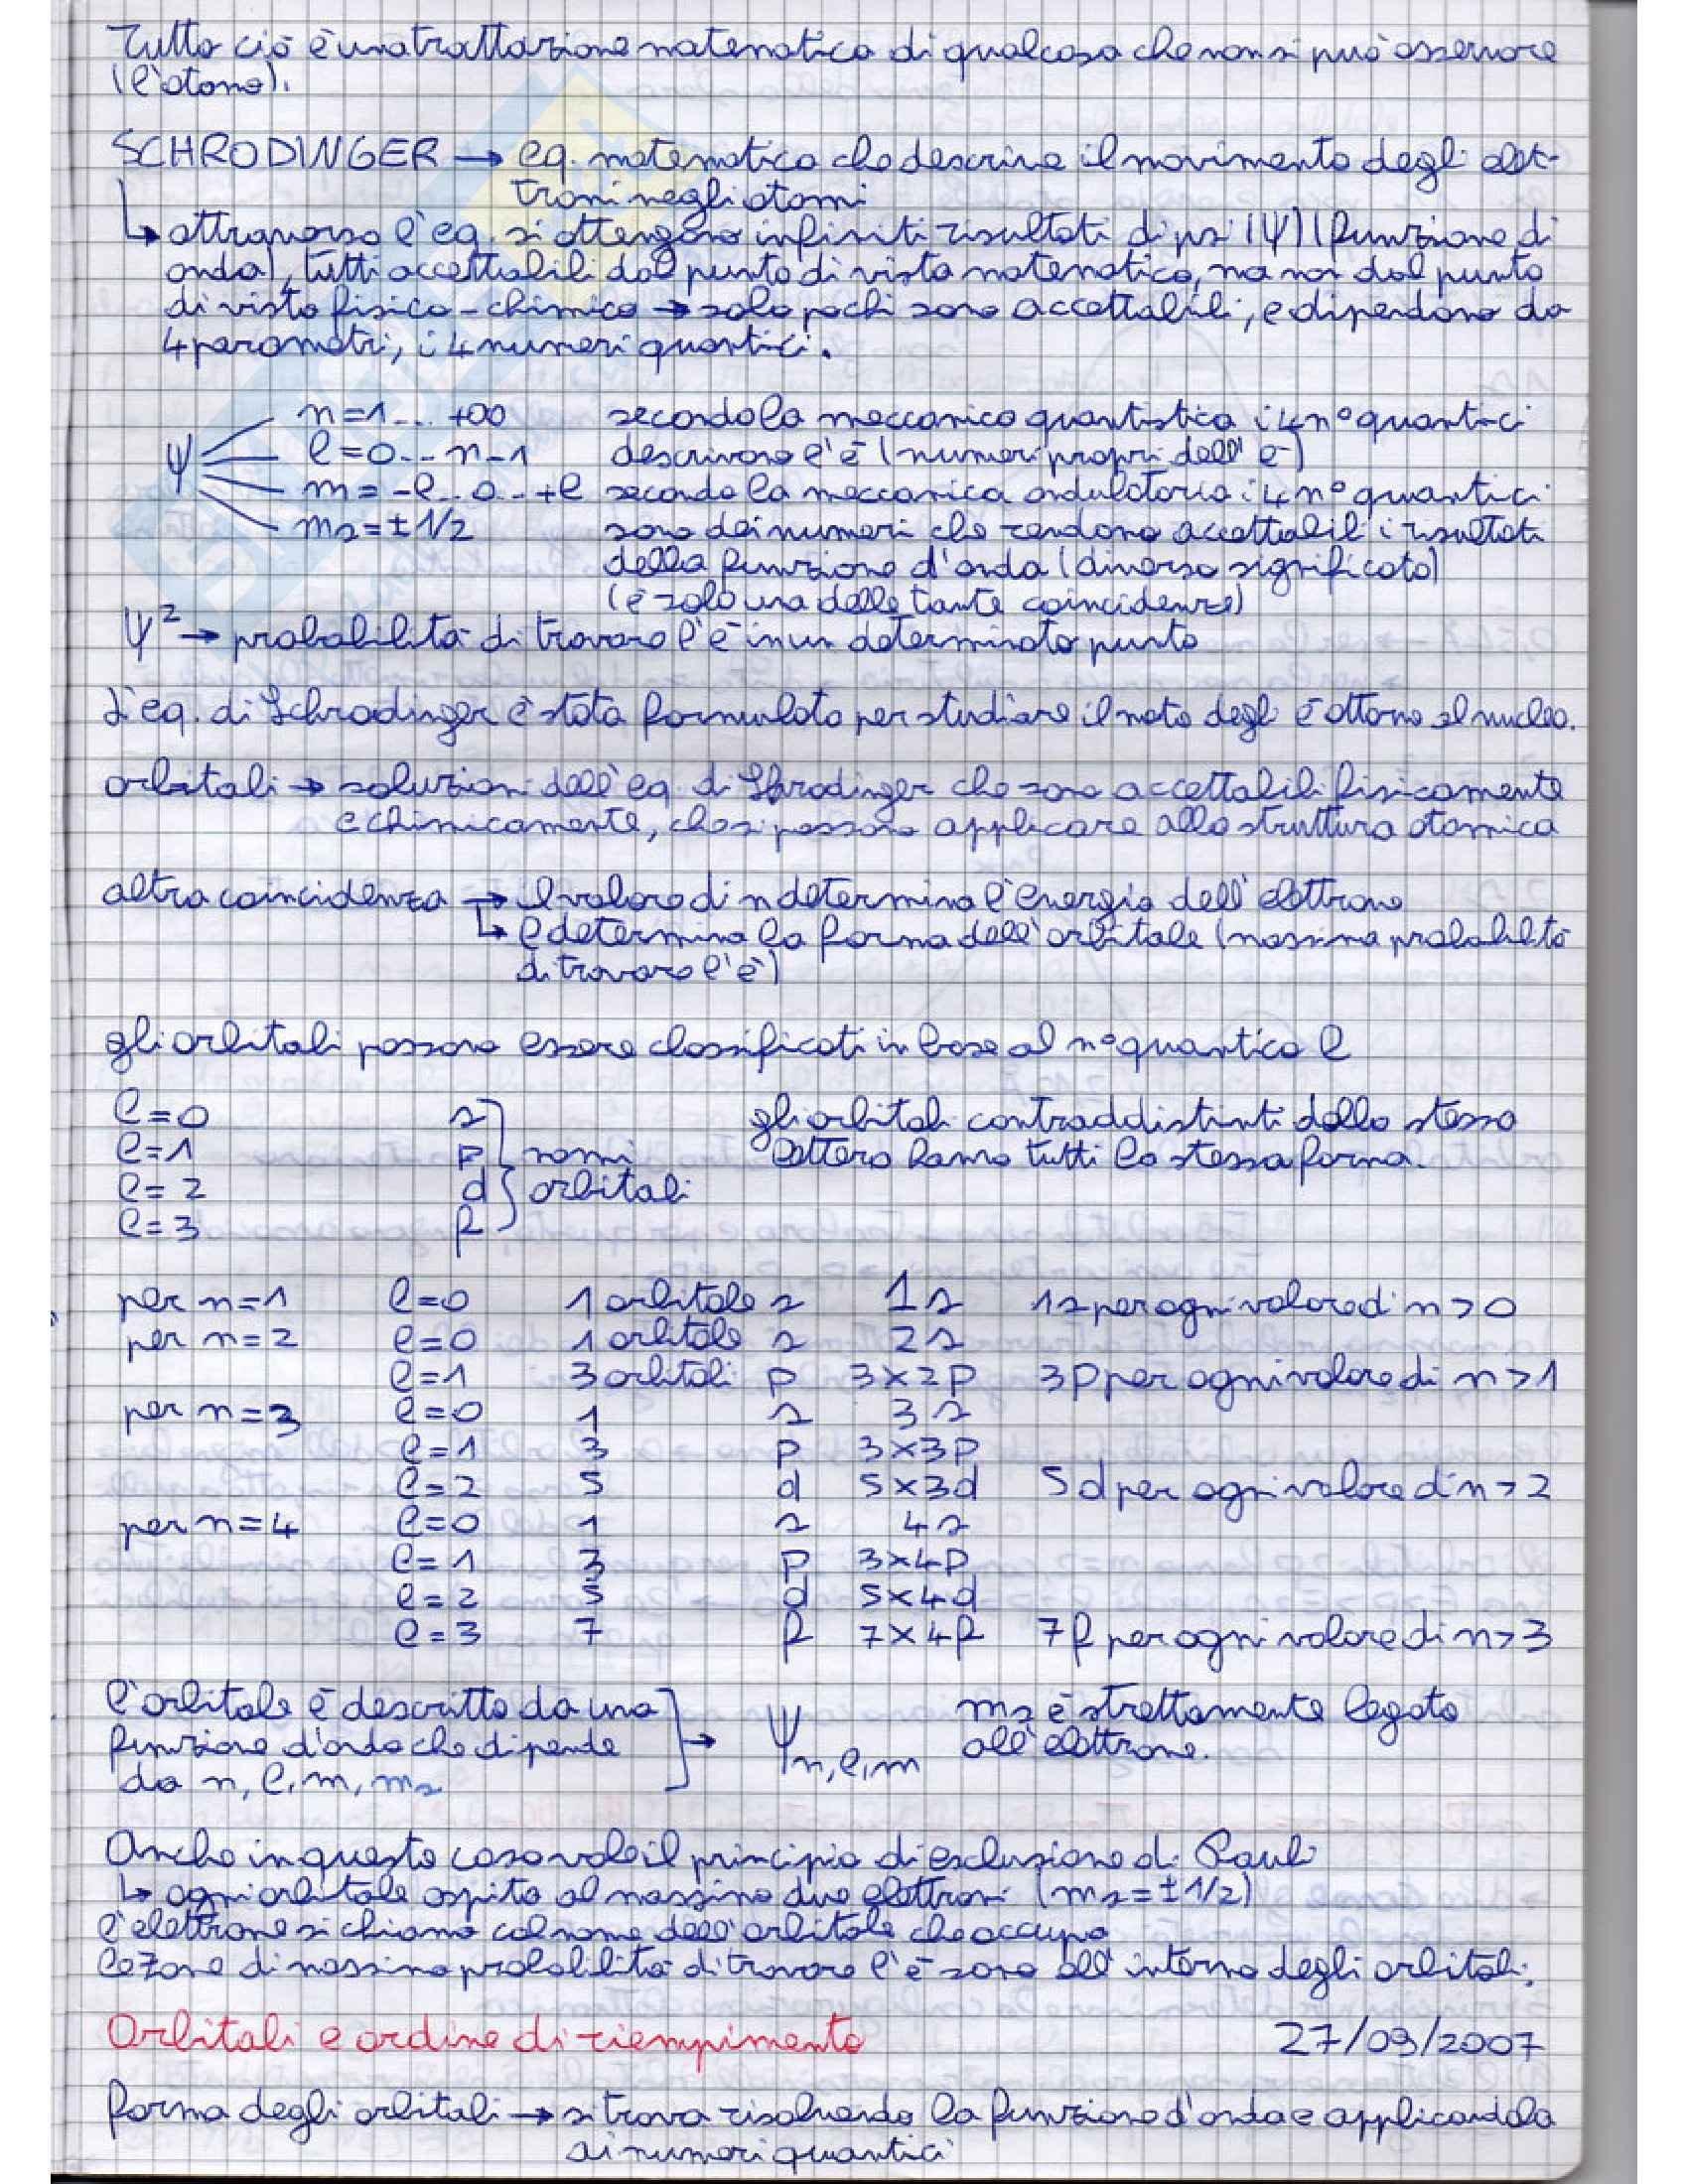 Tutto ciò è una trattazione matematica di qualcosa che non si può osservare
(l'atomo).
SCHRODINGER → eq. matematica che descrive il movimento degli elet-
troni negli atomi
↳ attraverso l'eq. si ottengono infiniti risultati di psi (Ψ) (funzione di
onda), tutti accettabili dal punto di vista matematico, ma non dal punto
di vista fisico-chimico → solo pochi sono accettabili, e dipendono da
4 parametri, i 4 numeri quantici.
Ψ
n=1... +∞ secondo la meccanica quantistica i 4 n° quantici
l=0...n-1 descrivono l'e⁻ (numeri propri dell'e⁻)
m=-l..0..+l secondo la meccanica ondulatoria i 4 n° quantici
ms=±1/2 sono dei numeri che rendono accettabili i risultati
della funzione d'onda (diverso significato)
(è solo una delle tante coincidenze)
Ψ² → probabilità di trovare l'e⁻ in un determinato punto
L'eq. di Schrodinger è stata formulata per studiare il moto degli e⁻ attorno al nucleo.
orbitali → soluzioni dell'eq. di Shrodinger che sono accettabili fisicamente
e chimicamente, che si possono applicare alla struttura atomica
altra coincidenza → il valore di n determina l'energia dell'elettrone
↳ l determina la forma dell'orbitale (massima probabilità
di trovare l'e⁻)
gli orbitali possono essere classificati in base al n° quantico l
l=0 s gli orbitali contraddistinti dalla stessa
l=1 p nomi lettera hanno tutti la stessa forma.
l=2 d orbitali
l=3 f
per n=1 l=0 1 orbitale s 1s 1s per ogni valore di n>0
per n=2 l=0 1 orbitale s 2s
l=1 3 orbitali p 3×2p 3p per ogni valore di n>1
per n=3 l=0 1 s 3s
l=1 3 p 3×3p
l=2 5 d 5×3d 5d per ogni valore di n>2
per n=4 l=0 1 s 4s
l=1 3 p 3×4p
l=2 5 d 5×4d
l=3 7 f 7×4f 7f per ogni valore di n>3
l'orbitale è descritto da una ms è strettamente legato
funzione d'onda che dipende → Ψn,l,m all'elettrone.
da n, l, m, ms
Anche in questo caso vale il principio di esclusione di Pauli
↳ ogni orbitale ospita al massimo due elettroni (ms=±1/2)
l'elettrone si chiama col nome dell'orbitale che occupa
le zone di massima probabilità di trovare l'e⁻ sono all'interno degli orbitali.
Orbitali e ordine di riempimento 27/09/2007
forma degli orbitali → si trova risolvendo la funzione d'onda e applicandola
ai numeri quantici